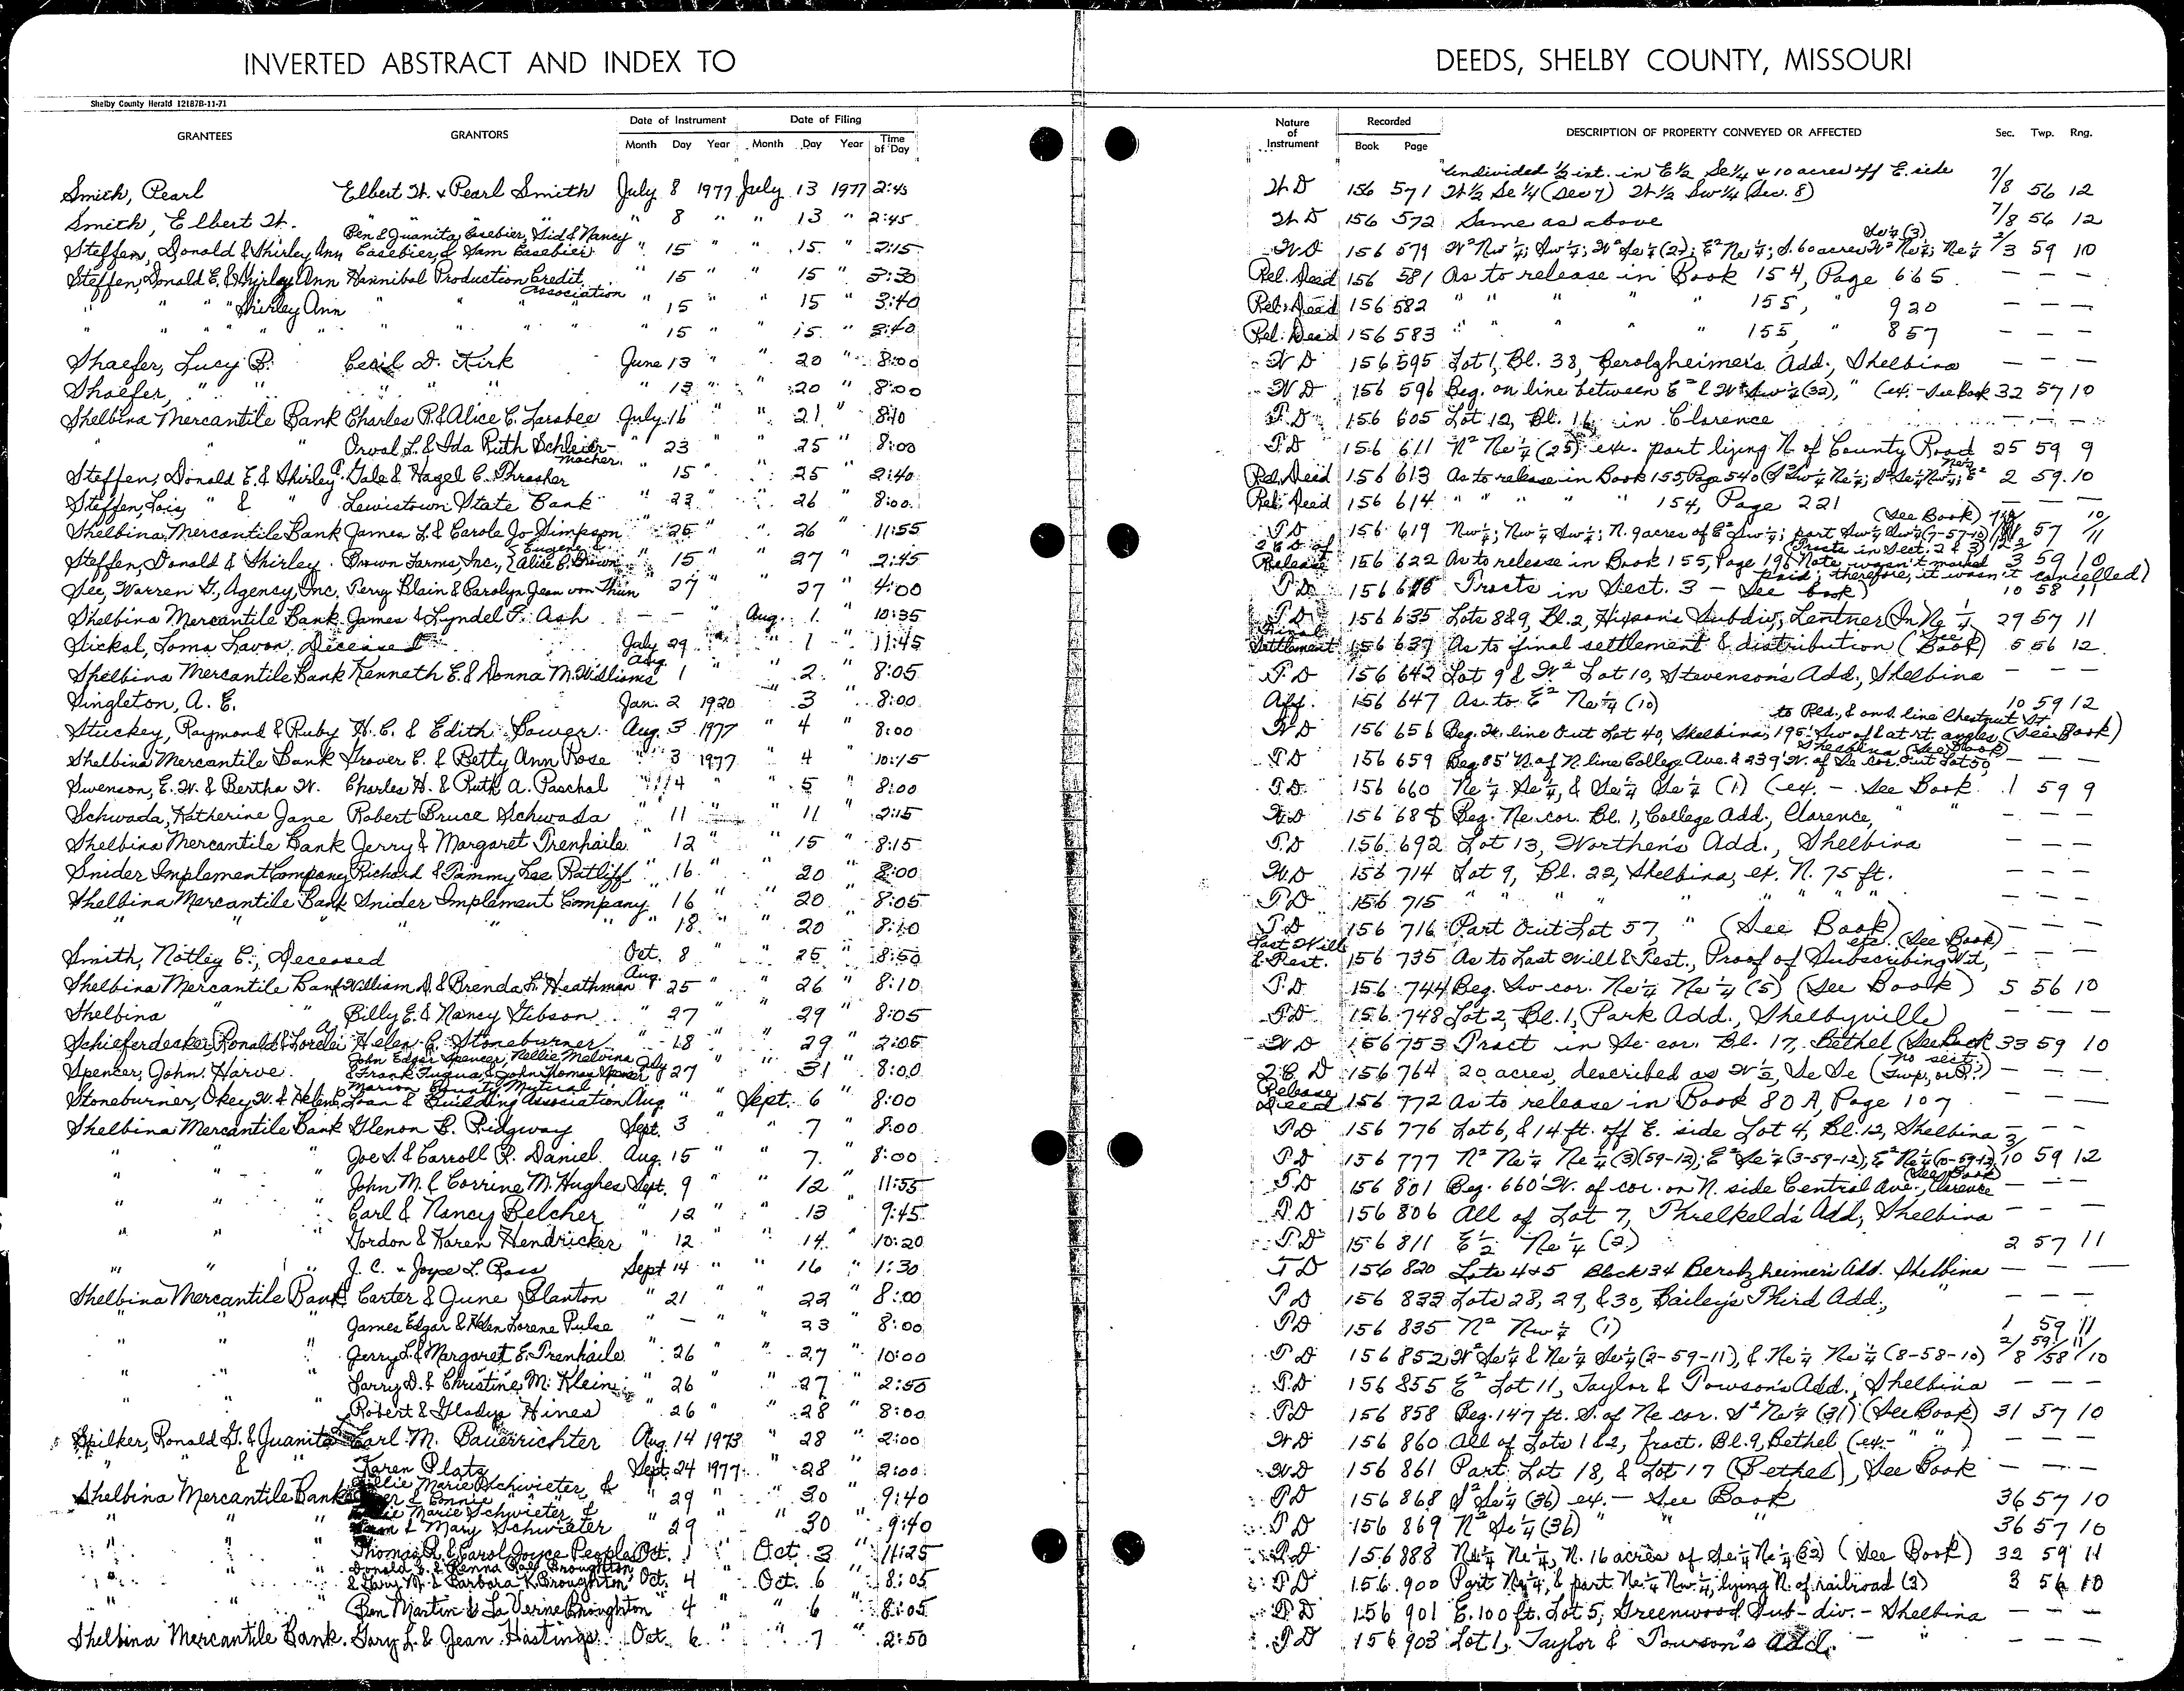 INVERTED ABSTRACT AND INDEX TO
DEEDS, SHELBY COUNTY, MISSOURI
Shelby County Herald 12187B-11-71
GRANTEES GRANTORS Date of Instrument Month Day Year Date of Filing Month Day Year Time of Day Nature of Instrument Recorded Book Page DESCRIPTION OF PROPERTY CONVEYED OR AFFECTED Sec. Twp. Rng.
Smith, Pearl Elbert W. & Pearl Smith July 8 1977 July 13 1977 2:45 W D 156 571 Undivided ½ int. in E½ Se¼ & 10 acres off E. side W½ Se¼ (Sec 7) W½ Sw¼ (Sec. 8) 7/8 56 12
Smith, Elbert W. " 8 " " 13 " 2:45 W D 156 572 Same as above 7/8 56 12
Steffen, Donald & Shirley Ann Ben & Juanita Easebier, Sid & Nancy Easebier, & Sam Easebier " 15 " " 15 " 2:15 W D 156 579 W² Nw¼; Sw¼; W² Se¼ (2); E² Ne¼; S. 60 acres W² Ne¼; Ne¼ Se¼ (3) 2/3 59 10
Steffen, Donald E. & Shirley Ann Hannibal Production Credit Association " 15 " " 15 " 3:30 Rel. Deed 156 581 As to release in Book 154, Page 665 — — —
" " " Shirley Ann " " " " 15 " " 15 " 3:40 Rel. Deed 156 582 " " " " 155, " 920 — — —
" " " " " " " " 15 " " 15 " 3:40 Rel. Deed 156 583 " " " " 155, " 857 — — —
Shaefer, Lucy B. Cecil D. Kirk June 13 " " 20 " 8:00 W D 156 595 Lot 1, Bl. 38, Berolzheimer's Add., Shelbina — — —
Shaefer, " " " " " " 13 " " 20 " 8:00 W D 156 596 Beg. on line between E² & W² Sw¼ (32), " (ex. - See Book 32 57 10
Shelbina Mercantile Bank Charles R. & Alice C. Larabee July 16 " " 21 " 8:10 T D 156 605 Lot 12, Bl. 16 in Clarence — — —
" " Orval L. & Ida Ruth Schleiermacher 23 25 " 8:00 T D 156 611 N² Ne¼ (25) ex. part lying N. of County Road 25 59 9
Steffen, Donald E. & Shirley Gale & Hazel C. Thrasher 15 " " 25 " 2:40 Rel. Deed 156 613 As to release in Book 155, Page 540 (S² Sw¼ Ne¼; S² Se¼ Nw¼; E² 2 59 10
Steffen, Lois " & " Lewistown State Bank " 22 " " 26 " 8:00 Rel. Deed 156 614 " " " " " 154, Page 221
Shelbina Mercantile Bank James L. & Carole Jo Simpson 25 " " 26 " 11:55 T D 156 619 Nw¼; Nw¼ Sw¼; N. 9 acres of E² Sw¼; part Sw¼ Sw¼ (7-57-10) (See Book) 57
Steffen, Donald & Shirley Brown Farms, Inc., Eugene & Alice B. Brown " 15 " " 27 " 2:45 Release 156 622 As to release in Book 155, Page 196 (Tracts in Sect. 2 & 3) Note wasn't marked paid; therefore, it wasn't cancelled) 3 59 10
See, Warren G., Agency, Inc. Perry Blain & Carolyn Jean von Thun " 27 " 27 " 4:00 T D 156 Tracts in Sect. 3 - See book) 10 58 11
Shelbina Mercantile Bank James & Lyndel F. Ash — — Aug. 1 " 10:35 T D 156 635 Lots 8&9, Bl. 2, Hixson's Subdiv., Lentner (In Ne¼ 29 57 11
Stickal, Loma Lavon, Deceased July 29 " " 1 " 11:45 Final Settlement 156 637 As to final settlement & distribution (See Book) 5 56 12
Shelbina Mercantile Bank Kenneth E. & Donna M. Williams Aug. 1 " " 2 " 8:05 T D 156 642 Lot 9 & W² Lot 10, Stevenson's Add., Shelbina — — —
Singleton, A. E. Jan. 2 1920 " 3 " 8:00 Aff. 156 647 As to E² Ne¼ (10) 10 59 12
Stuckey, Raymond & Ruby H. C. & Edith Bower Aug. 3 1977 " 4 " 8:00 W D 156 656 Beg. W. line Out Lot 40, Shelbina, 195' Sw of & at rt. angles to Rd., & on S. line Chestnut St. (See Book)
Shelbina Mercantile Bank Grover C. & Betty Ann Rose " 3 1977 " 4 " 10:15 T D 156 659 Beg. 85' N. of N. line College Ave. & 239' W. of Se cor. Out Lot 50, Shelbina (See Book) — — —
Swenson, E. W. & Bertha W. Charles H. & Ruth A. Paschal " 4 " 5 " 8:00 T D 156 660 Ne¼ Se¼, & Se¼ Se¼ (1) (ex. - See Book 1 59 9
Schwada, Katherine Jane Robert Bruce Schwada " 11 " " 11 " 2:15 W D 156 685 Beg. Ne cor. Bl. 1, College Add., Clarence, " " — — —
Shelbina Mercantile Bank Jerry & Margaret Trenhaile " 12 " " 15 " 8:15 T D 156 692 Lot 13, Worthen's Add., Shelbina — — —
Snider Implement Company Richard & Tammy Lee Ratliff " 16 " " 20 " 8:00 W D 156 714 Lot 9, Bl. 22, Shelbina, ex. N. 75 ft. — — —
Shelbina Mercantile Bank Snider Implement Company 16 " " 20 " 8:05 T D 156 715 " " " " " " — — —
" " " " " " " 18 " " 20 " 8:10 T D 156 716 Part Out Lot 57, " (See Book) — — —
Smith, Notley C., Deceased Oct. 8 " " 25 " 8:50 Last Will & Test. 156 735 As to Last Will & Test., Proof of Subscribing Wit., etc. (See Book) — — —
Shelbina Mercantile Bank William D. & Brenda L. Heathman Aug. 25 " " 26 " 8:10 T D 156 744 Beg. Sw cor. Ne¼ Ne¼ (5) (See Book) 5 56 10
Shelbina " " Billy E. & Nancy Gibson " 27 " " 29 " 8:05 T D 156 748 Lot 2, Bl. 1, Park Add., Shelbyville — — —
Schieferdecker, Ronald & Lorelei Helen C. Stoneburner " 18 " 29 " 2:05 W D 156 753 Tract in Se cor. Bl. 17, Bethel (See Book 33 59 10
Spencer, John Harve John Edgar Spencer, Nellie Melvina & Frank Fuqua & John Thomas Spencer July 27 " " 31 " 8:00 Q. C. D 156 764 20 acres, described as W½, Se Se (no sect. Twp., or R.?) — — —
Stoneburner, Okey W. & Helen C. Marion County Mutual Loan & Building Association Aug. " " Sept. 6 " 8:00 Release Deed 156 772 As to release in Book 80 A, Page 107 — — —
Shelbina Mercantile Bank Glenon B. Ridgway Sept. 3 " 7 " 8:00 T D 156 776 Lot 6, & 14 ft. off E. side Lot 4, Bl. 12, Shelbina — — —
" " " Joe S. & Carroll R. Daniel Aug. 15 " " 7 " 8:00 T D 156 777 N² Ne¼ Ne¼ (3)(59-12); E² Se¼ (3-59-12); E² Ne¼ (10-59-12) 3/10 59 12
" " " John M. & Corrine M. Hughes Sept. 9 " " 12 " 11:55 T D 156 801 Beg. 660' W. of cor. on N. side Central Ave., Clarence (See Book) — — —
" " " Carl & Nancy Belcher " 12 " " 13 9:45 T D 156 806 All of Lot 7, Threlkeld's Add., Shelbina — — —
" " " Gordon & Karen Hendricker " 12 " " 14 " 10:20 T D 156 811 E½ Ne¼ (2) 2 57 11
" " " J. C. & Joyce L. Ross Sept 14 " " 16 " 1:30 T D 156 820 Lots 4 & 5 Block 34 Berolzheimer's Add. Shelbina — — —
Shelbina Mercantile Bank Carter & June Blanton " 21 " " 22 " 8:00 T D 156 833 Lots 28, 29, & 30, Bailey's Third Add., " — — —
" " " James Edgar & Helen Lorene Pulse " — " " 23 " 8:00 T D 156 835 N² Nw¼ (1) 1 59 11
" " " Jerry L. & Margaret E. Trenhaile " 26 " " 27 " 10:00 T D 156 852 W² Se¼ & Ne¼ Se¼ (2-59-11), & Ne¼ Ne¼ (8-58-10) 2/8 59/58 11/10
" " " Larry D. & Christine M. Klein " 26 " 27 " 2:50 T D 156 855 E² Lot 11, Taylor & Towson's Add., Shelbina — — —
" " " Robert & Gladys Hines " 26 " " 28 " 8:00 T D 156 858 Beg. 147 ft. S. of Ne cor. S² Ne¼ (31) (See Book) 31 57 10
Spilker, Ronald G. & Juanita Earl M. Bauerrichter Aug. 14 1973 " 28 " 2:00 W D 156 860 All of Lots 1 & 2, fract. Bl. 9, Bethel (ex. - " ")
" & " Karen Platz Sept. 24 1977 " 28 " 2:00 W D 156 861 Part Lot 18, & Lot 17 (Bethel), See Book — — —
Shelbina Mercantile Bank Marie Schwieter & & Connie " 29 " " 30 " 9:40 T D 156 868 S² Se¼ (36) ex. - See Book 36 57 10
" " " Marie Schwieter & & Mary Schwieter " 29 " " 30 " 9:40 T D 156 869 N² Se¼ (36) " " " 36 57 10
" " " Thomas R. & Carol Joyce Peoples Oct. 1 " Oct. 3 " 11:25 T D 156 888 Ne¼ Ne¼, N. 16 acres of Se¼ Ne¼ (32) (See Book) 32 59 11
" " " Donald & Broughton & Gary M. & Barbara K. Broughton Oct. 4 " Oct. 6 " 8:05 T D 156 900 Part Nw¼, & part Ne¼ Nw¼, lying N. of railroad (3) 3 56 10
" " " Ben Martin & La Verne Broughton " 4 " " 6 " 8:05 T D 156 901 E. 100 ft. Lot 5, Greenwood Sub-div. - Shelbina — — —
Shelbina Mercantile Bank Gary L. & Jean Hastings Oct. 6 " " 7 " 2:50 T D 156 903 Lot 1, Taylor & Towson's Add. — " — — —